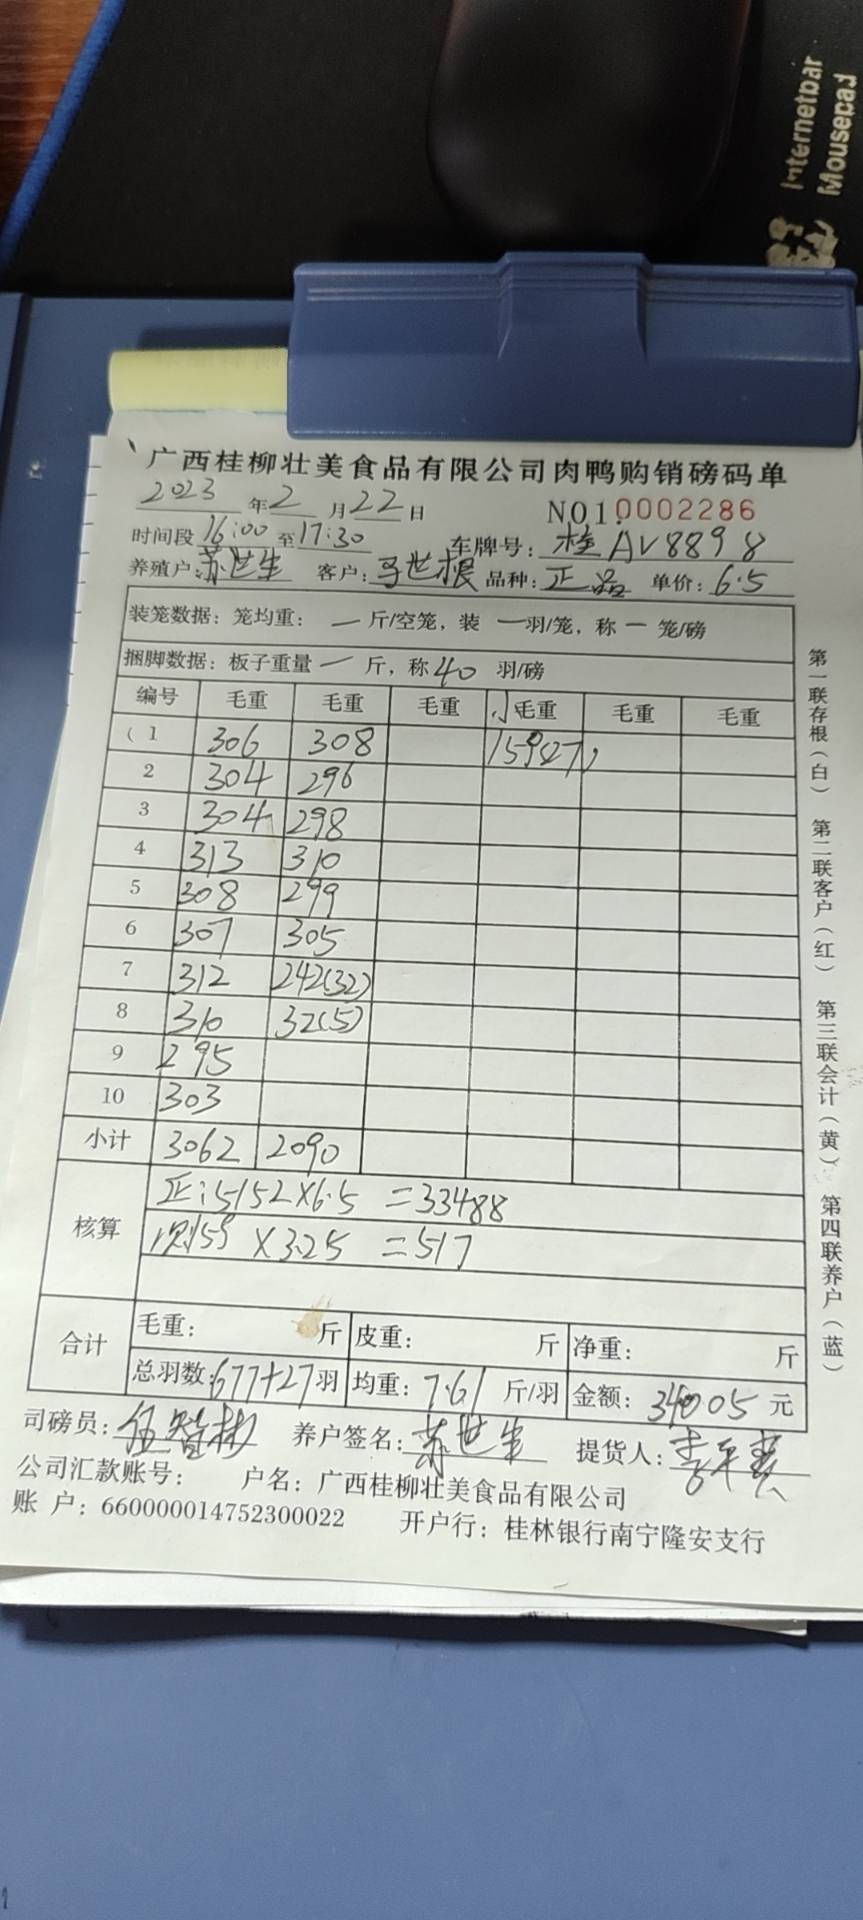 Internetbar
Mousepad
广西桂柳壮美食品有限公司肉鸭购销磅码单
2023年2月22日 NO1.0002286
时间段16:00至17:30 车牌号：桂AV8898
养殖户：苏世生 客户：马世根 品种：正品 单价：6.5
装笼数据：笼均重：一斤/空笼，装一羽/笼，称一笼/磅
捆脚数据：板子重量一斤，称40羽/磅
编号 毛重 毛重 毛重 小毛重 毛重 毛重
1 306 308 159(27)
2 304 296
3 304 298
4 313 310
5 308 299
6 307 305
7 312 242(32)
8 310 32(5)
9 295
10 303
小计 3062 2090
核算
正：5152×6.5=33488
次159×3.25=517
合计
毛重： 斤 皮重： 斤 净重： 斤
总羽数：677+27羽 均重：7.61斤/羽 金额：34005元
司磅员：伍智彬 养户签名：苏世生 提货人：
公司汇款账号： 户名：广西桂柳壮美食品有限公司
账 户：660000014752300022 开户行：桂林银行南宁隆安支行
第一联存根（白） 第二联客户（红） 第三联会计（黄） 第四联养户（蓝）